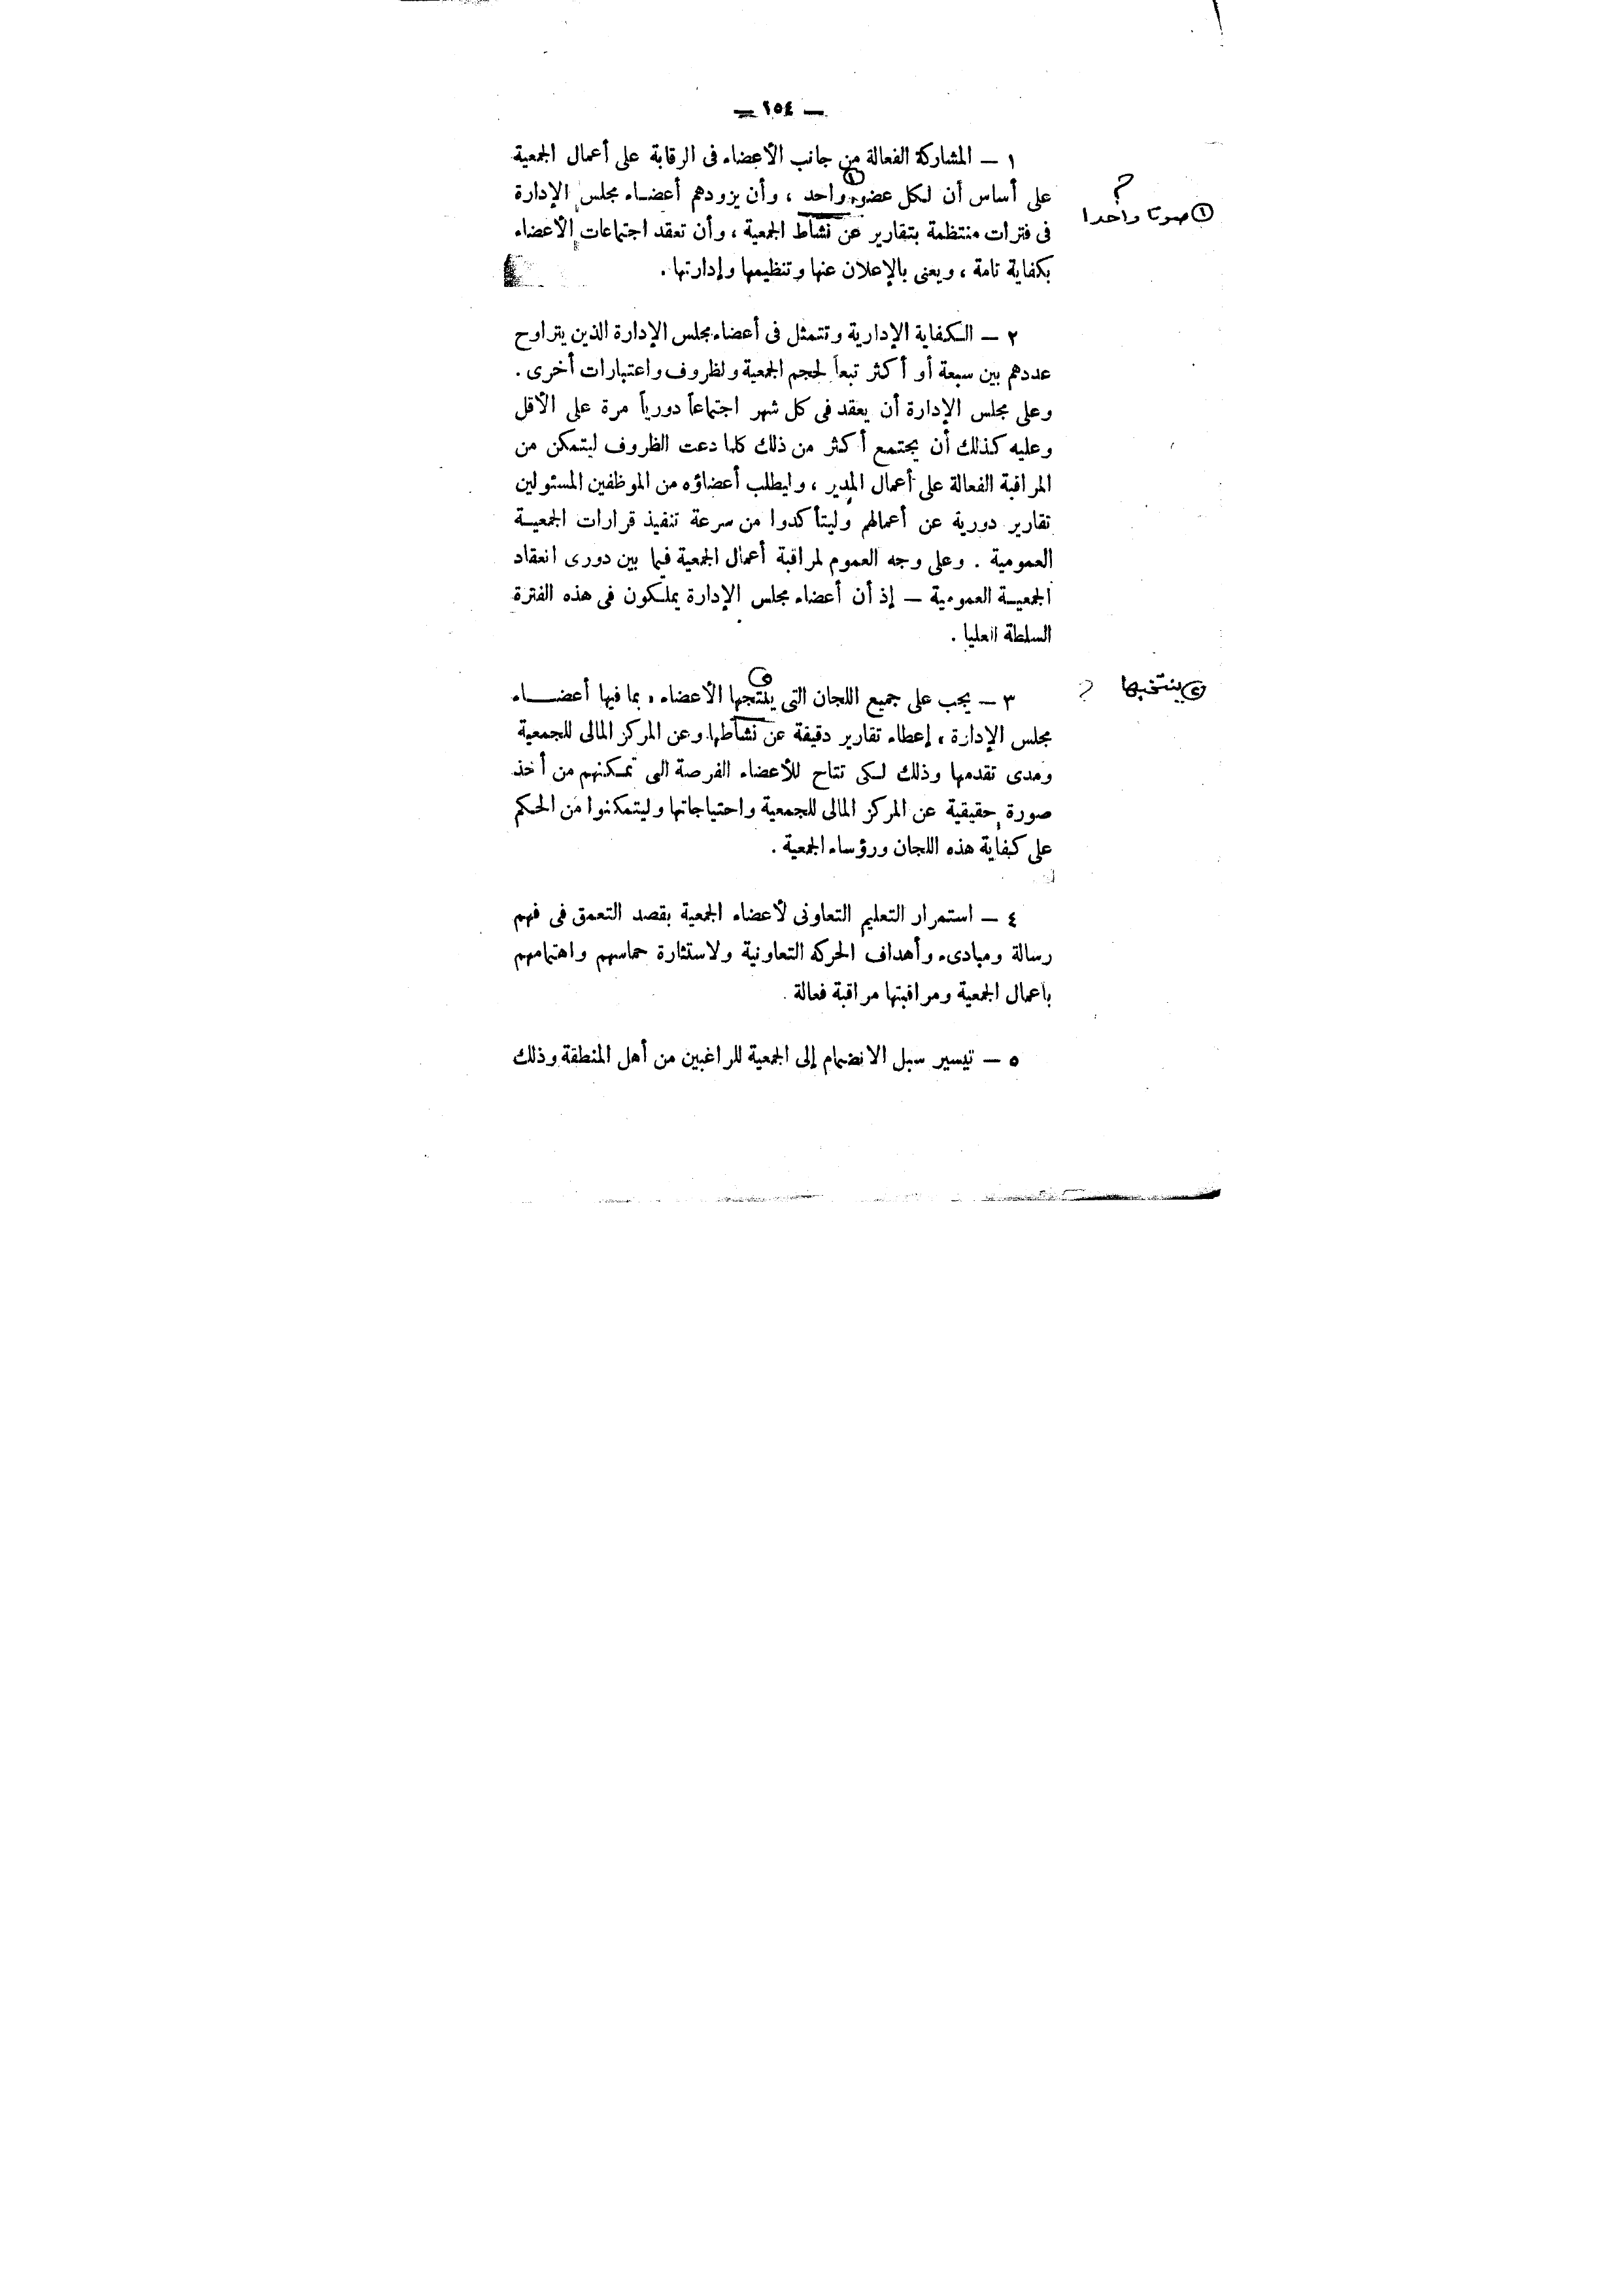 — ١٥٤ —
١ — المشاركة الفعالة من جانب الأعضاء فى الرقابة على أعمال الجمعية
على أساس أن لكل عضو واحد ، وأن يزودهم أعضاء مجلس الإدارة
① صوتا واحدا ؟
فى فترات منتظمة بتقارير عن نشاط الجمعية ، وأن تعقد اجتماعات الأعضاء
بكفاية تامة ، ويعنى بالإعلان عنها وتنظيمها وإدارتها .
٢ — الكفاية الإدارية وتتمثل فى أعضاء مجلس الإدارة الذين يتراوح
عددهم بين سبعة أو أكثر تبعاً لحجم الجمعية ولظروف واعتبارات أخرى .
وعلى مجلس الإدارة أن يعقد فى كل شهر اجتماعاً دورياً مرة على الأقل
وعليه كذلك أن يجتمع أكثر من ذلك كلما دعت الظروف ليتمكن من
المراقبة الفعالة على أعمال المدير ، وليطلب أعضاؤه من الموظفين المسئولين
تقارير دورية عن أعمالهم وليتأكدوا من سرعة تنفيذ قرارات الجمعية
العمومية . وعلى وجه العموم لمراقبة أعمال الجمعية فيما بين دورى انعقاد
الجمعية العمومية — إذ أن أعضاء مجلس الإدارة يملكون فى هذه الفترة
السلطة العليا .
② ينتخبها ؟
٣ — يجب على جميع اللجان التى الأعضاء ، بما فيها أعضاء
مجلس الإدارة ، إعطاء تقارير دقيقة عن نشاطها وعن المركز المالى للجمعية
ومدى تقدمها وذلك لكى تتاح للأعضاء الفرصة التى تمكنهم من أخذ
صورة حقيقية عن المركز المالى للجمعية واحتياجاتها وليتمكنوا من الحكم
على كفاية هذه اللجان ورؤساء الجمعية .
٤ — استمرار التعليم التعاونى لأعضاء الجمعية بقصد التعمق فى فهم
رسالة ومبادىء وأهداف الحركه التعاونية ولاستثارة حماسهم واهتمامهم
بأعمال الجمعية ومراقبتها مراقبة فعالة .
٥ — تيسير سبل الانضمام إلى الجمعية للراغبين من أهل المنطقة وذلك